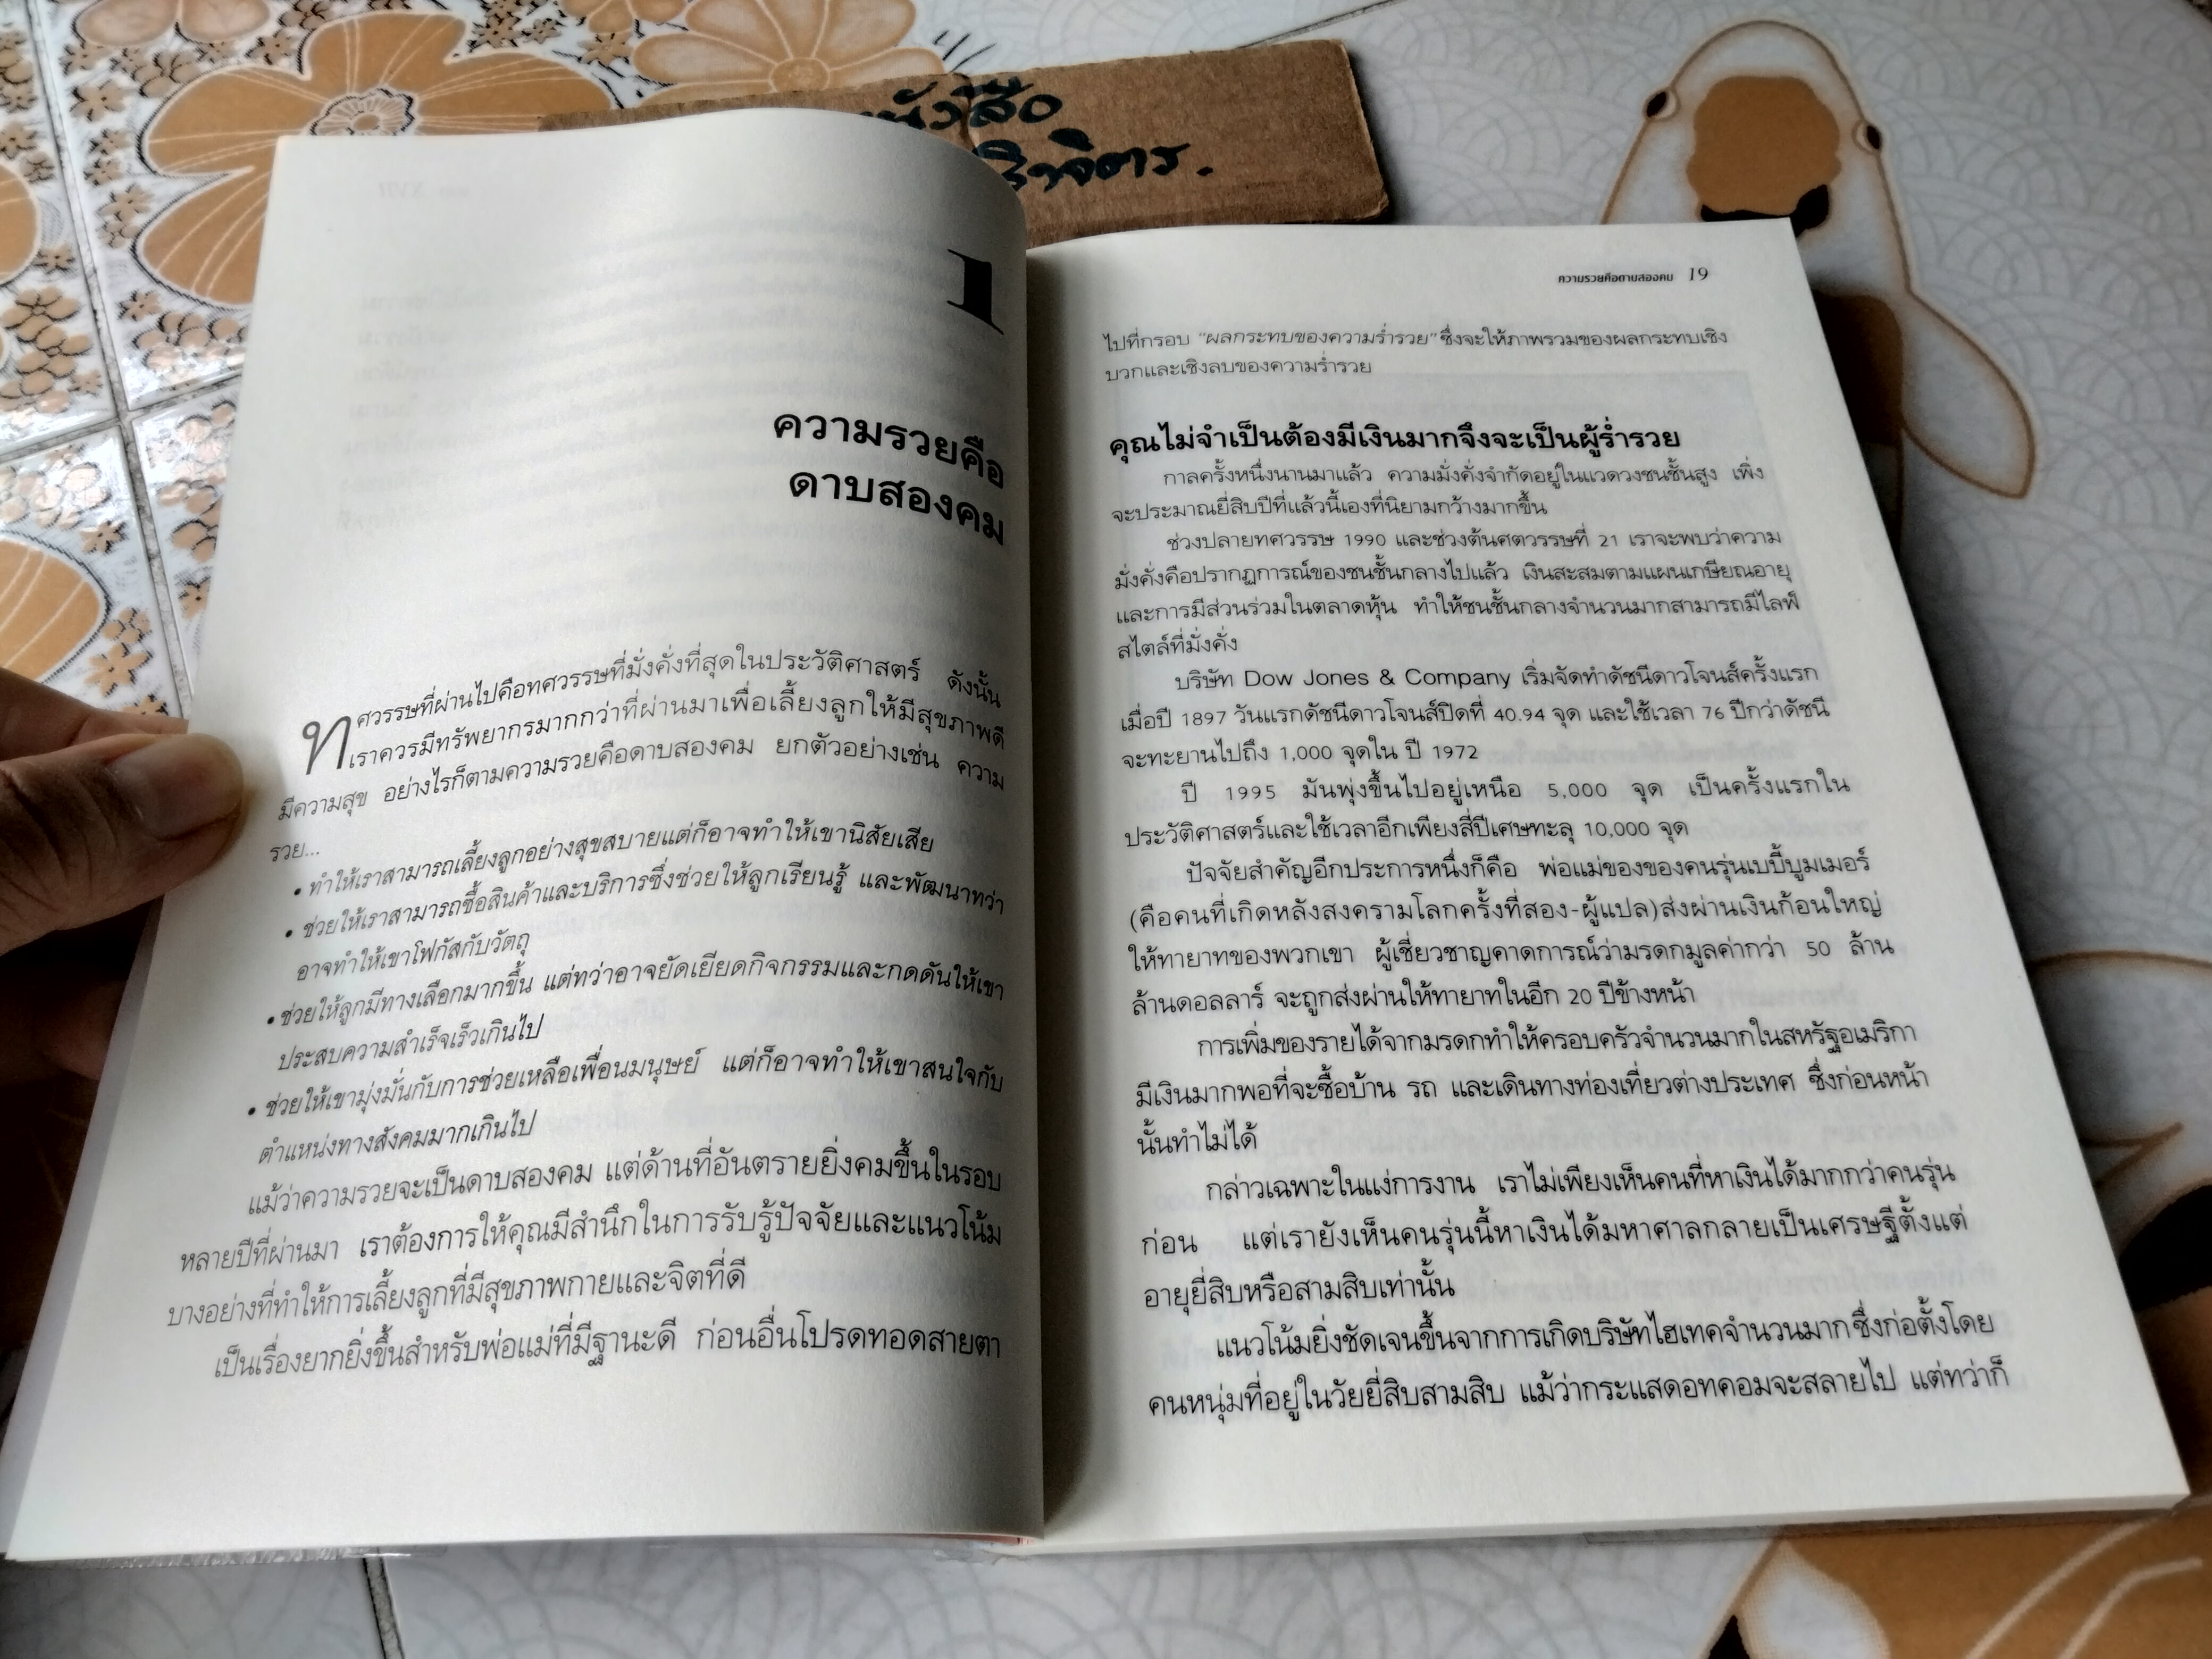 หนังสือ
1
ความรวยคือ
ดาบสองคม
ทศวรรษที่ผ่านไปคือทศวรรษที่มั่งคั่งที่สุดในประวัติศาสตร์ ดังนั้น
เราควรมีทรัพยากรมากกว่าที่ผ่านมาเพื่อเลี้ยงลูกให้มีสุขภาพดี
มีความสุข อย่างไรก็ตามความรวยคือดาบสองคม ยกตัวอย่างเช่น ความ
รวย...
• ทำให้เราสามารถเลี้ยงลูกอย่างสุขสบายแต่ก็อาจทำให้เขานิสัยเสีย
• ช่วยให้เราสามารถซื้อสินค้าและบริการซึ่งช่วยให้ลูกเรียนรู้ และพัฒนาทว่า
อาจทำให้เขาโฟกัสกับวัตถุ
• ช่วยให้ลูกมีทางเลือกมากขึ้น แต่ทว่าอาจยัดเยียดกิจกรรมและกดดันให้เขา
ประสบความสำเร็จเร็วเกินไป
• ช่วยให้เขามุ่งมั่นกับการช่วยเหลือเพื่อนมนุษย์ แต่ก็อาจทำให้เขาสนใจกับ
ตำแหน่งทางสังคมมากเกินไป
แม้ว่าความรวยจะเป็นดาบสองคม แต่ด้านที่อันตรายยิ่งคมขึ้นในรอบ
หลายปีที่ผ่านมา เราต้องการให้คุณมีสำนึกในการรับรู้ปัจจัยและแนวโน้ม
บางอย่างที่ทำให้การเลี้ยงลูกที่มีสุขภาพกายและจิตที่ดี
เป็นเรื่องยากยิ่งขึ้นสำหรับพ่อแม่ที่มีฐานะดี ก่อนอื่นโปรดทอดสายตา
ความรวยคือดาบสองคม 19
ไปที่กรอบ "ผลกระทบของความร่ำรวย" ซึ่งจะให้ภาพรวมของผลกระทบเชิง
บวกและเชิงลบของความร่ำรวย
คุณไม่จำเป็นต้องมีเงินมากจึงจะเป็นผู้ร่ำรวย
กาลครั้งหนึ่งนานมาแล้ว ความมั่งคั่งจำกัดอยู่ในแวดวงชนชั้นสูง เพิ่ง
จะประมาณยี่สิบปีที่แล้วนี้เองที่นิยามกว้างมากขึ้น
ช่วงปลายทศวรรษ 1990 และช่วงต้นศตวรรษที่ 21 เราจะพบว่าความ
มั่งคั่งคือปรากฏการณ์ของชนชั้นกลางไปแล้ว เงินสะสมตามแผนเกษียณอายุ
และการมีส่วนร่วมในตลาดหุ้น ทำให้ชนชั้นกลางจำนวนมากสามารถมีไลฟ์
สไตล์ที่มั่งคั่ง
บริษัท Dow Jones & Company เริ่มจัดทำดัชนีดาวโจนส์ครั้งแรก
เมื่อปี 1897 วันแรกดัชนีดาวโจนส์ปิดที่ 40.94 จุด และใช้เวลา 76 ปีกว่าดัชนี
จะทะยานไปถึง 1,000 จุดใน ปี 1972
ปี 1995 มันพุ่งขึ้นไปอยู่เหนือ 5,000 จุด เป็นครั้งแรกใน
ประวัติศาสตร์และใช้เวลาอีกเพียงสี่ปีเศษทะลุ 10,000 จุด
ปัจจัยสำคัญอีกประการหนึ่งก็คือ พ่อแม่ของของคนรุ่นเบบี้บูมเมอร์
(คือคนที่เกิดหลังสงครามโลกครั้งที่สอง-ผู้แปล)ส่งผ่านเงินก้อนใหญ่
ให้ทายาทของพวกเขา ผู้เชี่ยวชาญคาดการณ์ว่ามรดกมูลค่ากว่า 50 ล้าน
ล้านดอลลาร์ จะถูกส่งผ่านให้ทายาทในอีก 20 ปีข้างหน้า
การเพิ่มของรายได้จากมรดกทำให้ครอบครัวจำนวนมากในสหรัฐอเมริกา
มีเงินมากพอที่จะซื้อบ้าน รถ และเดินทางท่องเที่ยวต่างประเทศ ซึ่งก่อนหน้า
นั้นทำไม่ได้
กล่าวเฉพาะในแง่การงาน เราไม่เพียงเห็นคนที่หาเงินได้มากกว่าคนรุ่น
ก่อน แต่เรายังเห็นคนรุ่นนี้หาเงินได้มหาศาลกลายเป็นเศรษฐีตั้งแต่
อายุยี่สิบหรือสามสิบเท่านั้น
แนวโน้มยิ่งชัดเจนขึ้นจากการเกิดบริษัทไฮเทคจำนวนมาก ซึ่งก่อตั้งโดย
คนหนุ่มที่อยู่ในวัยยี่สิบสามสิบ แม้ว่ากระแสดอทคอมจะสลายไป แต่ทว่าก็